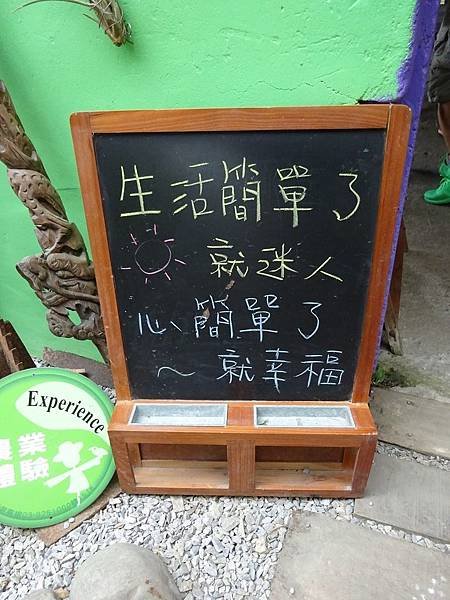 生活簡單了
就迷人
心簡單了
～就幸福
Experience
農業
體驗